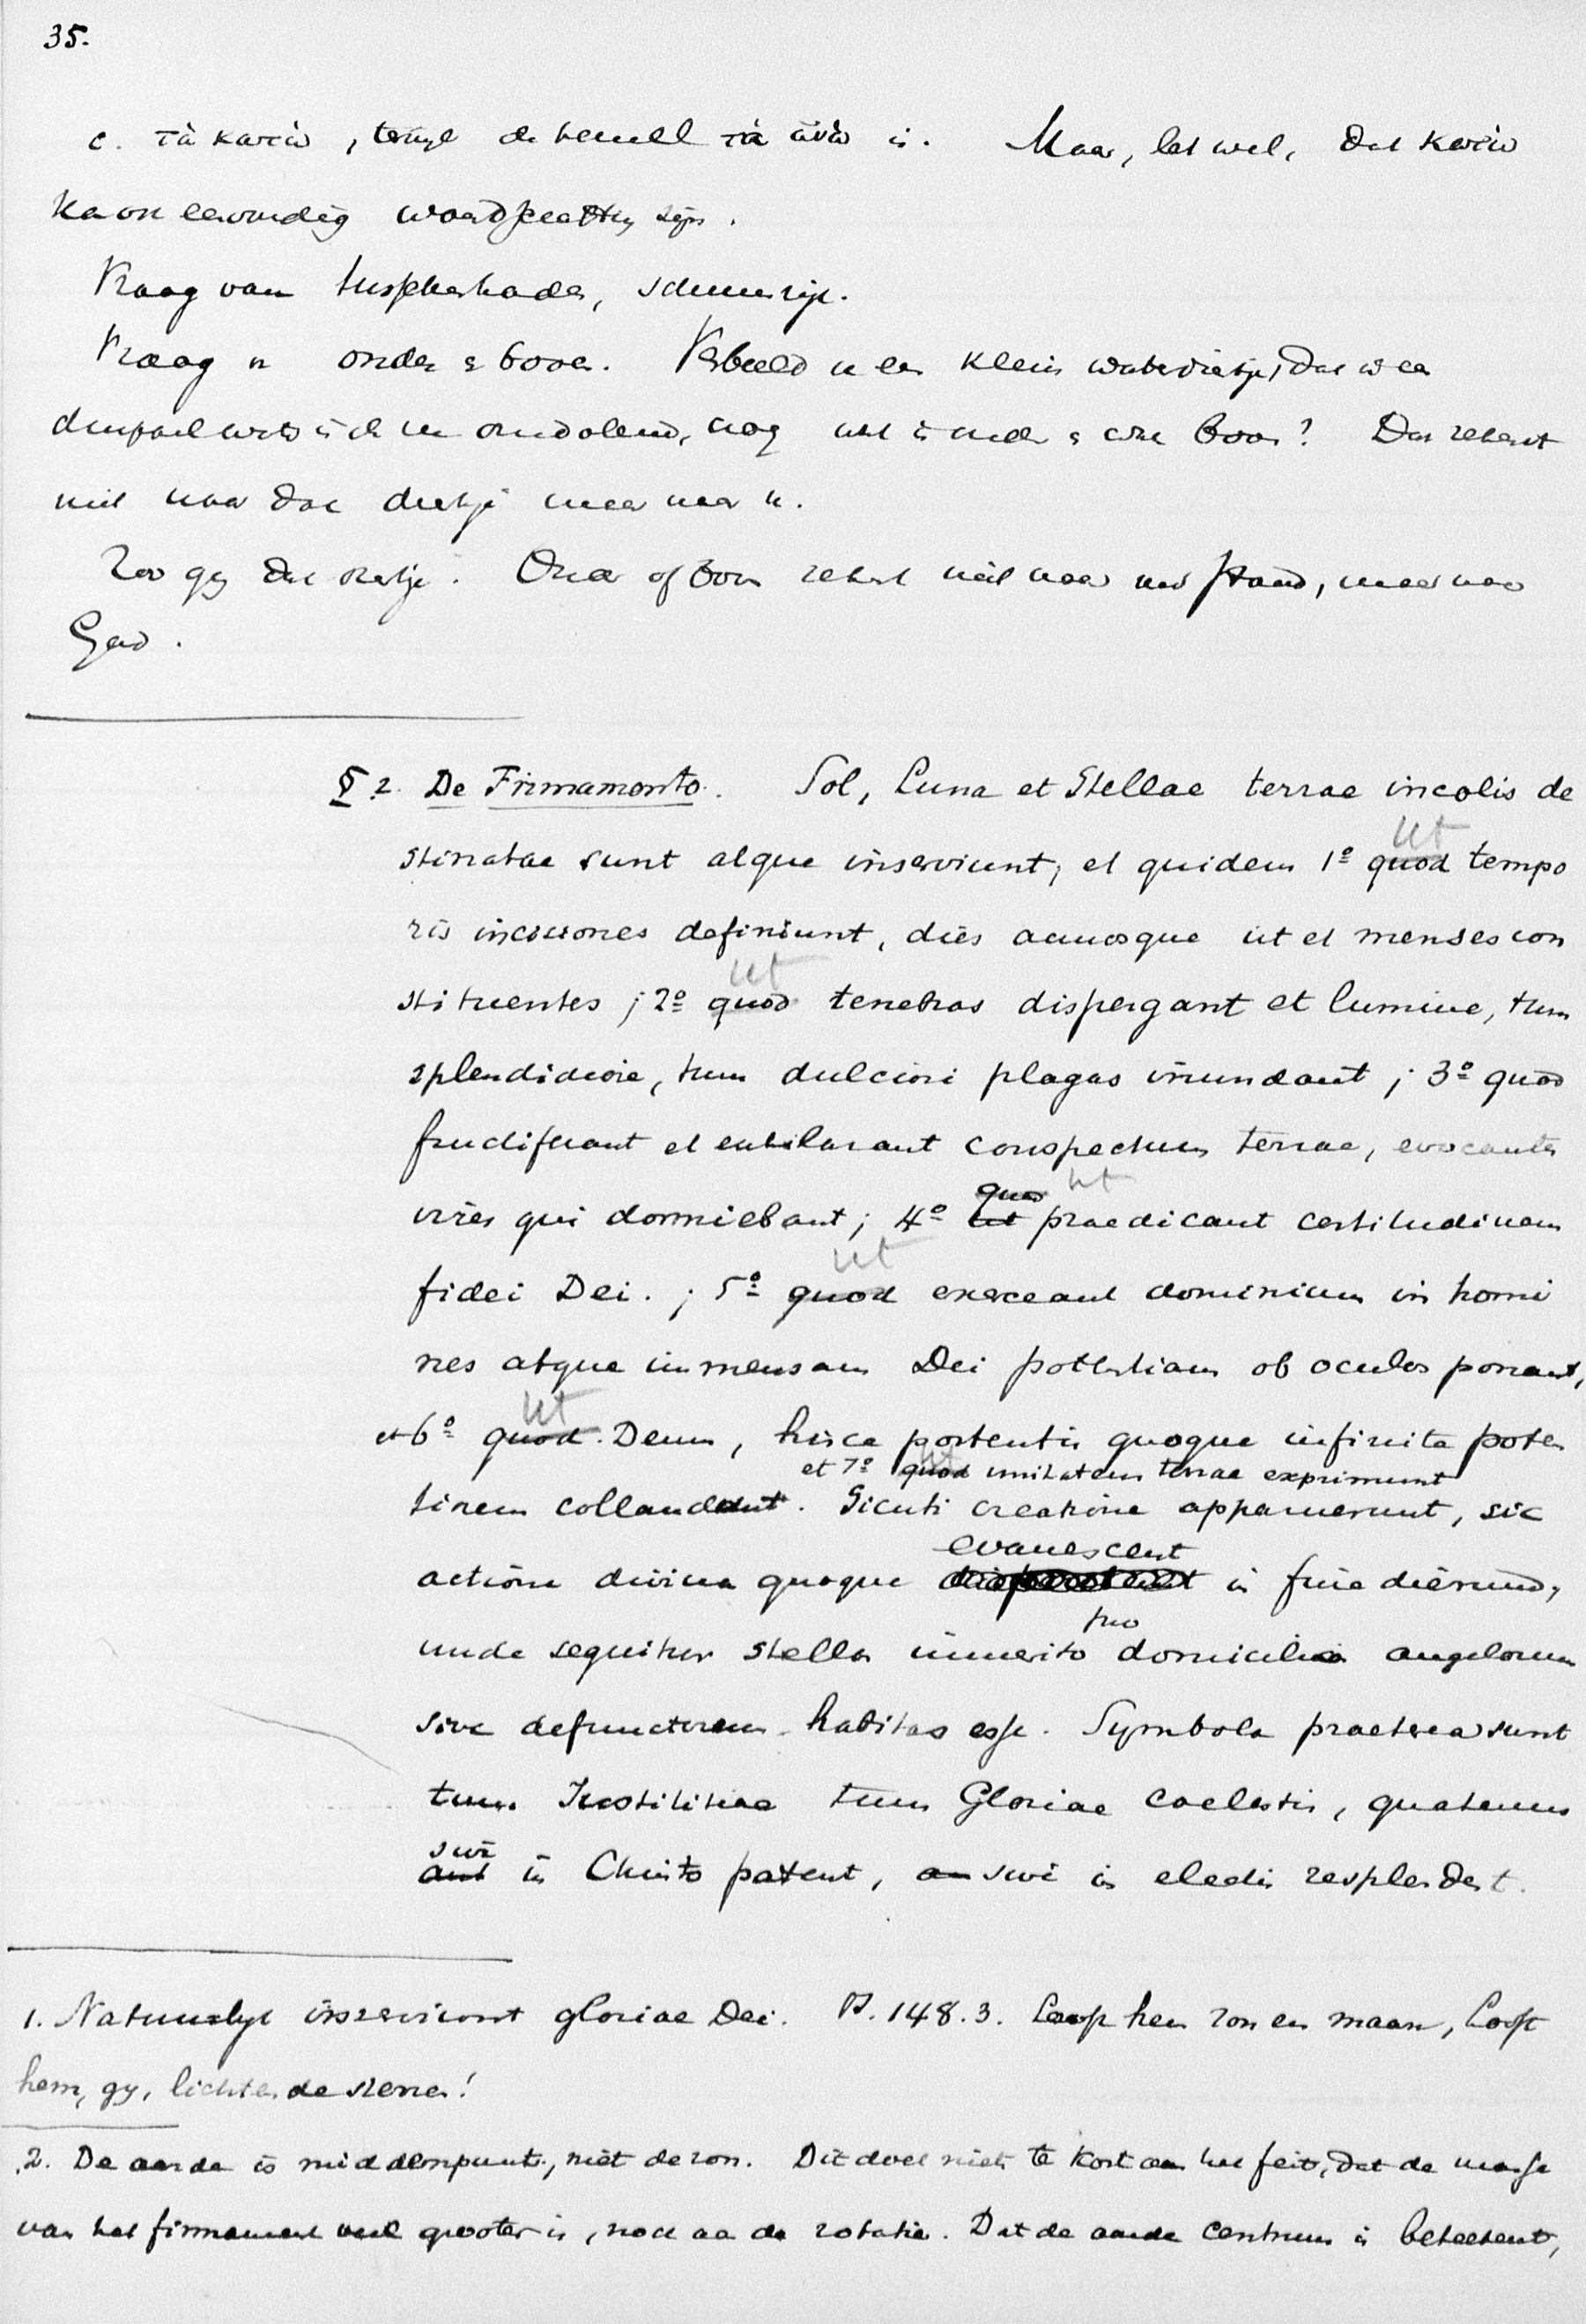 35.
c. τὰ κατὼ, terwyl de hemel τὰ ἀνὼ is. Maar, let wel, dat κατὼ
kan eenvoudig zyn.
Vraag van, schimrijk.
Vraag n onder & boven. Verbeeld u een klein waterdiertje, dat in een
en nog wat is onder & wat boven? Dat rekent
niet naar dat diertje maar naar u.
Zoo gy dat diertje. Onder of boven rekent niet naar uw stand, maar naar
God.
§ 2. De Firmamento. Sol, Luna et Stellae terrae incolis de
stinatae sunt atque inserviunt, et quidem 1º quod ut tempo
ris incisiones definiunt, dies annosque ut et menses con
stituentes; 2º quod ut tenebras dispergant et lumine, tum
splendidiore, tum dulciori plagas inundant; 3º quod
fructificant et exhilarant conspectum terrae, evocantes
vires qui dormiebant; 4º ut quod ut praedicant certitudinem
fidei Dei.; 5º quod ut exerceant dominium in homi
nes atque immensam Dei potestiam ob oculos ponant,
et 6º quod ut Deum, hisce portentis quoque infinite poten
et 7º quod ut unitatem terrae exprimunt
tirem collaudant. Sicuti creatione apparuerunt, sic
evanescent
actione divina quoque in fine dierum,
pro
unde sequitur stellas immerito domicilia angelorum
sive defunctorum habitas esse. Symbola praeterea sunt
tum Justititiae tum Gloriae Coelestis, quatenus
sive
aut in Christo patent, an sive in electis resplendent.
1. Natuurlyk inserviunt gloriae Dei. Ps. 148.3. Looft hem zon en maan, Looft
hem, gy, lichtende sterren!
2. De aarde is middenpunt, niet de zon. Dit doet niet te kort aan het feit, dat de massa
van het firmament veel grooter is, noch aan de rotatie. Dat de aarde Centrum is beteekent,